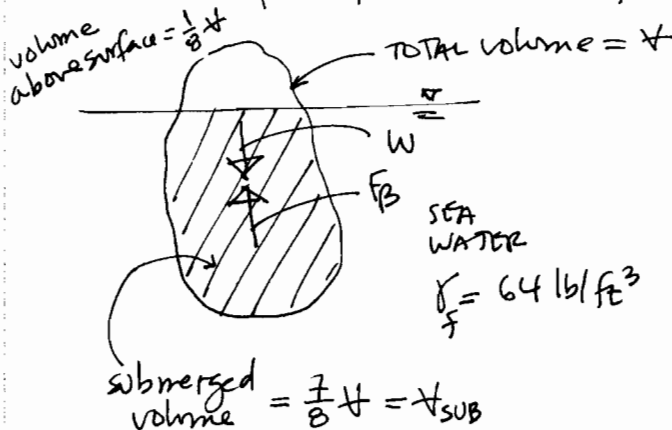 volume
above surface = 1/8 V
TOTAL volume = V
W
F_B
SEA
WATER
γ_f = 64 lb/ft³
submerged
volume = 7/8 V = V_SUB